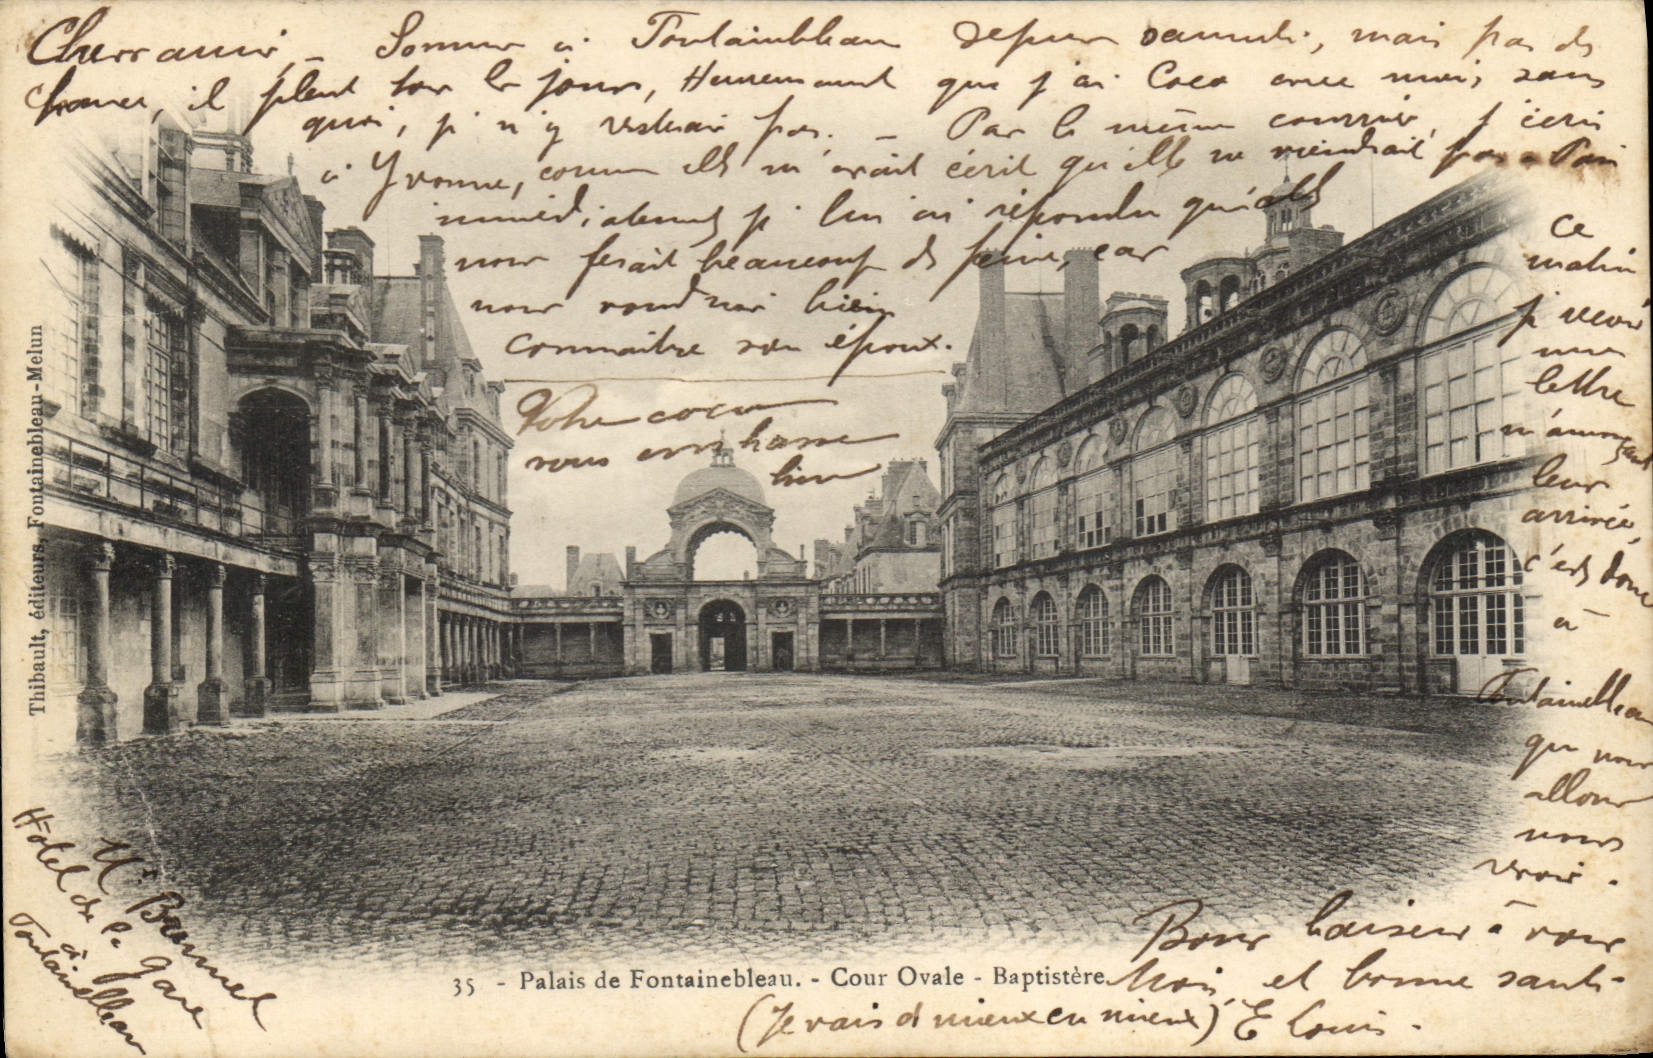 Chers amis, - Sommes à Fontainebleau depuis samedi, mais pas de
chance, il pleut tous les jours, Heureusement que j'ai Coco avec moi, sans
quoi, je n'y resterais pas. - Par le même courrier, j'écris
à Yvonne, comme elle m'avait écrit qu'elle ne viendrait pas à Paris
immédiatement je lui ai répondu qu'elle
nous ferait beaucoup de peine, car
nous voudrions bien
connaître son époux.
Votre coco
vous embrasse
bien
ce
matin
je reçois
une
lettre
m'annonçant
leur
arrivée,
c'est donc
à
Fontainebleau
que nous
allons
nous
voir.
Bons baisers à vous
trois, et bonne santé
(Je vais de mieux en mieux) E Louis.
Mr.
Hôtel de la gare
à
Fontainebleau
Thibault, éditeurs, Fontainebleau-Melun
35 - Palais de Fontainebleau. - Cour Ovale - Baptistère.